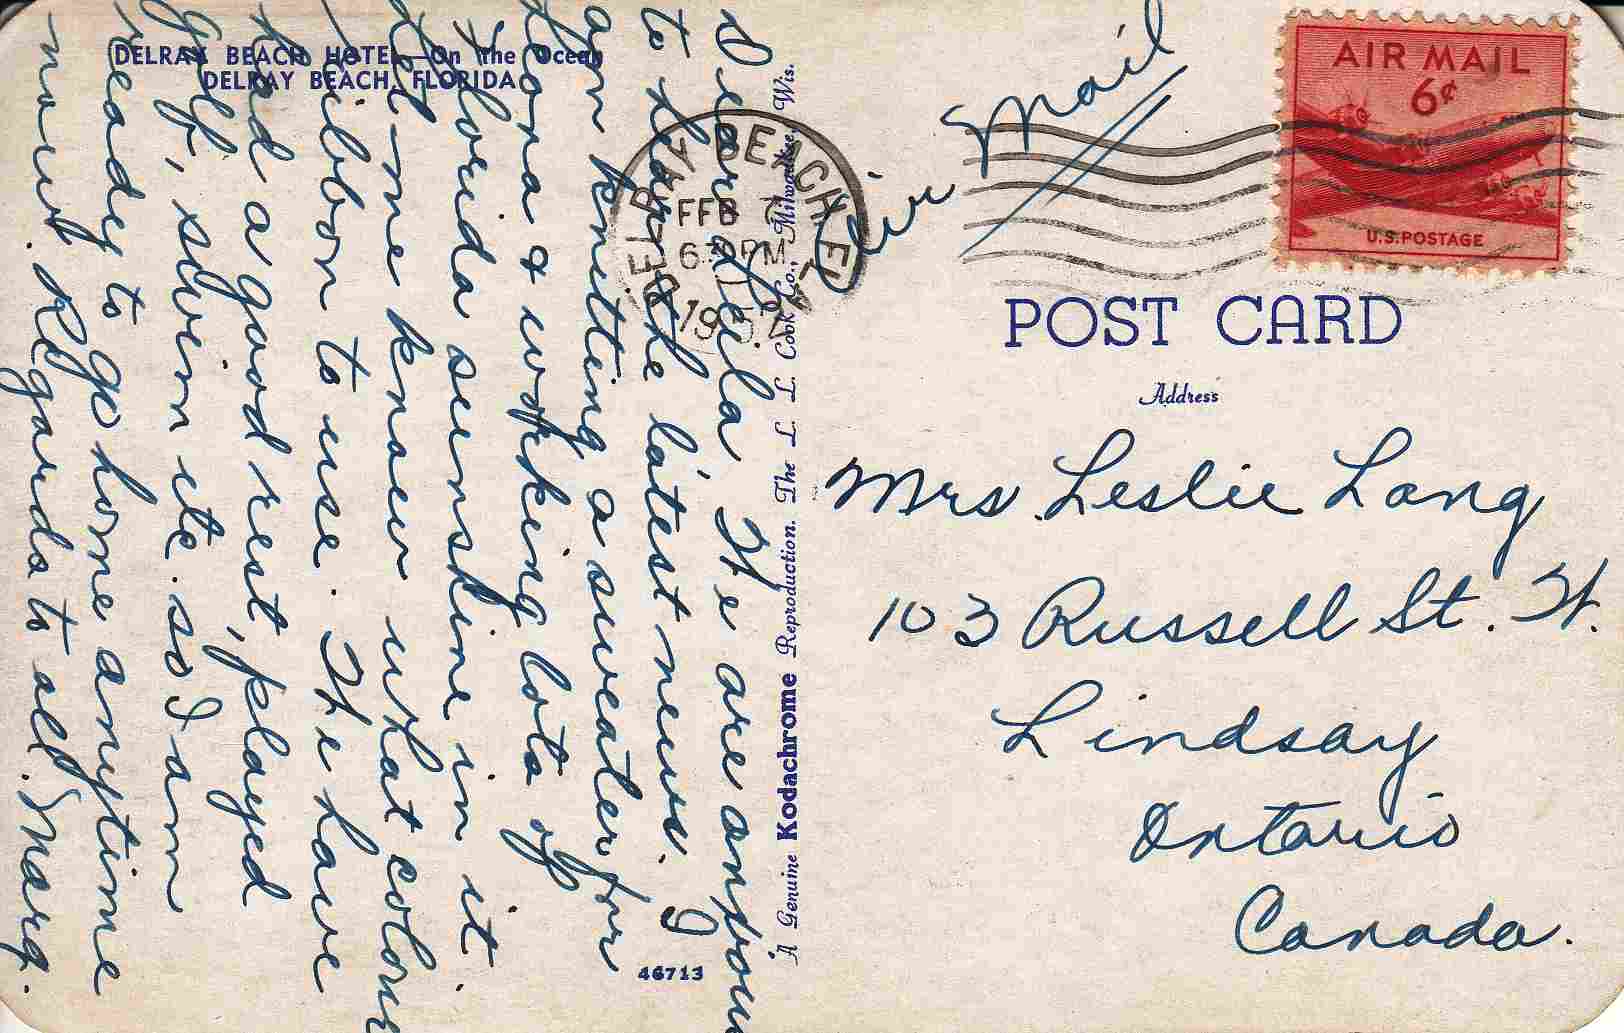 DELRAY BEACH HOTEL—On the Ocean
DELRAY BEACH, FLORIDA
Dear Leila. We are anxious
to hear the latest news. I
am knitting a sweater for
Leona & working lots of
Florida sunshine in it.
Let me know what colour
ribbon to use. We have
had a good rest, played
golf, swim etc. so I am
ready to go home anytime
now. Regards to all. Marg.
A Genuine Kodachrome Reproduction. The L. L. Cook Co., Milwaukee, Wis.
46713
DELRAY BEACH, FLA.
FEB
PM
1952
Air Mail
AIR MAIL
6¢
U.S. POSTAGE
POST CARD
Address
Mrs. Leslie Lang
103 Russell St. W.
Lindsay
Ontario
Canada.